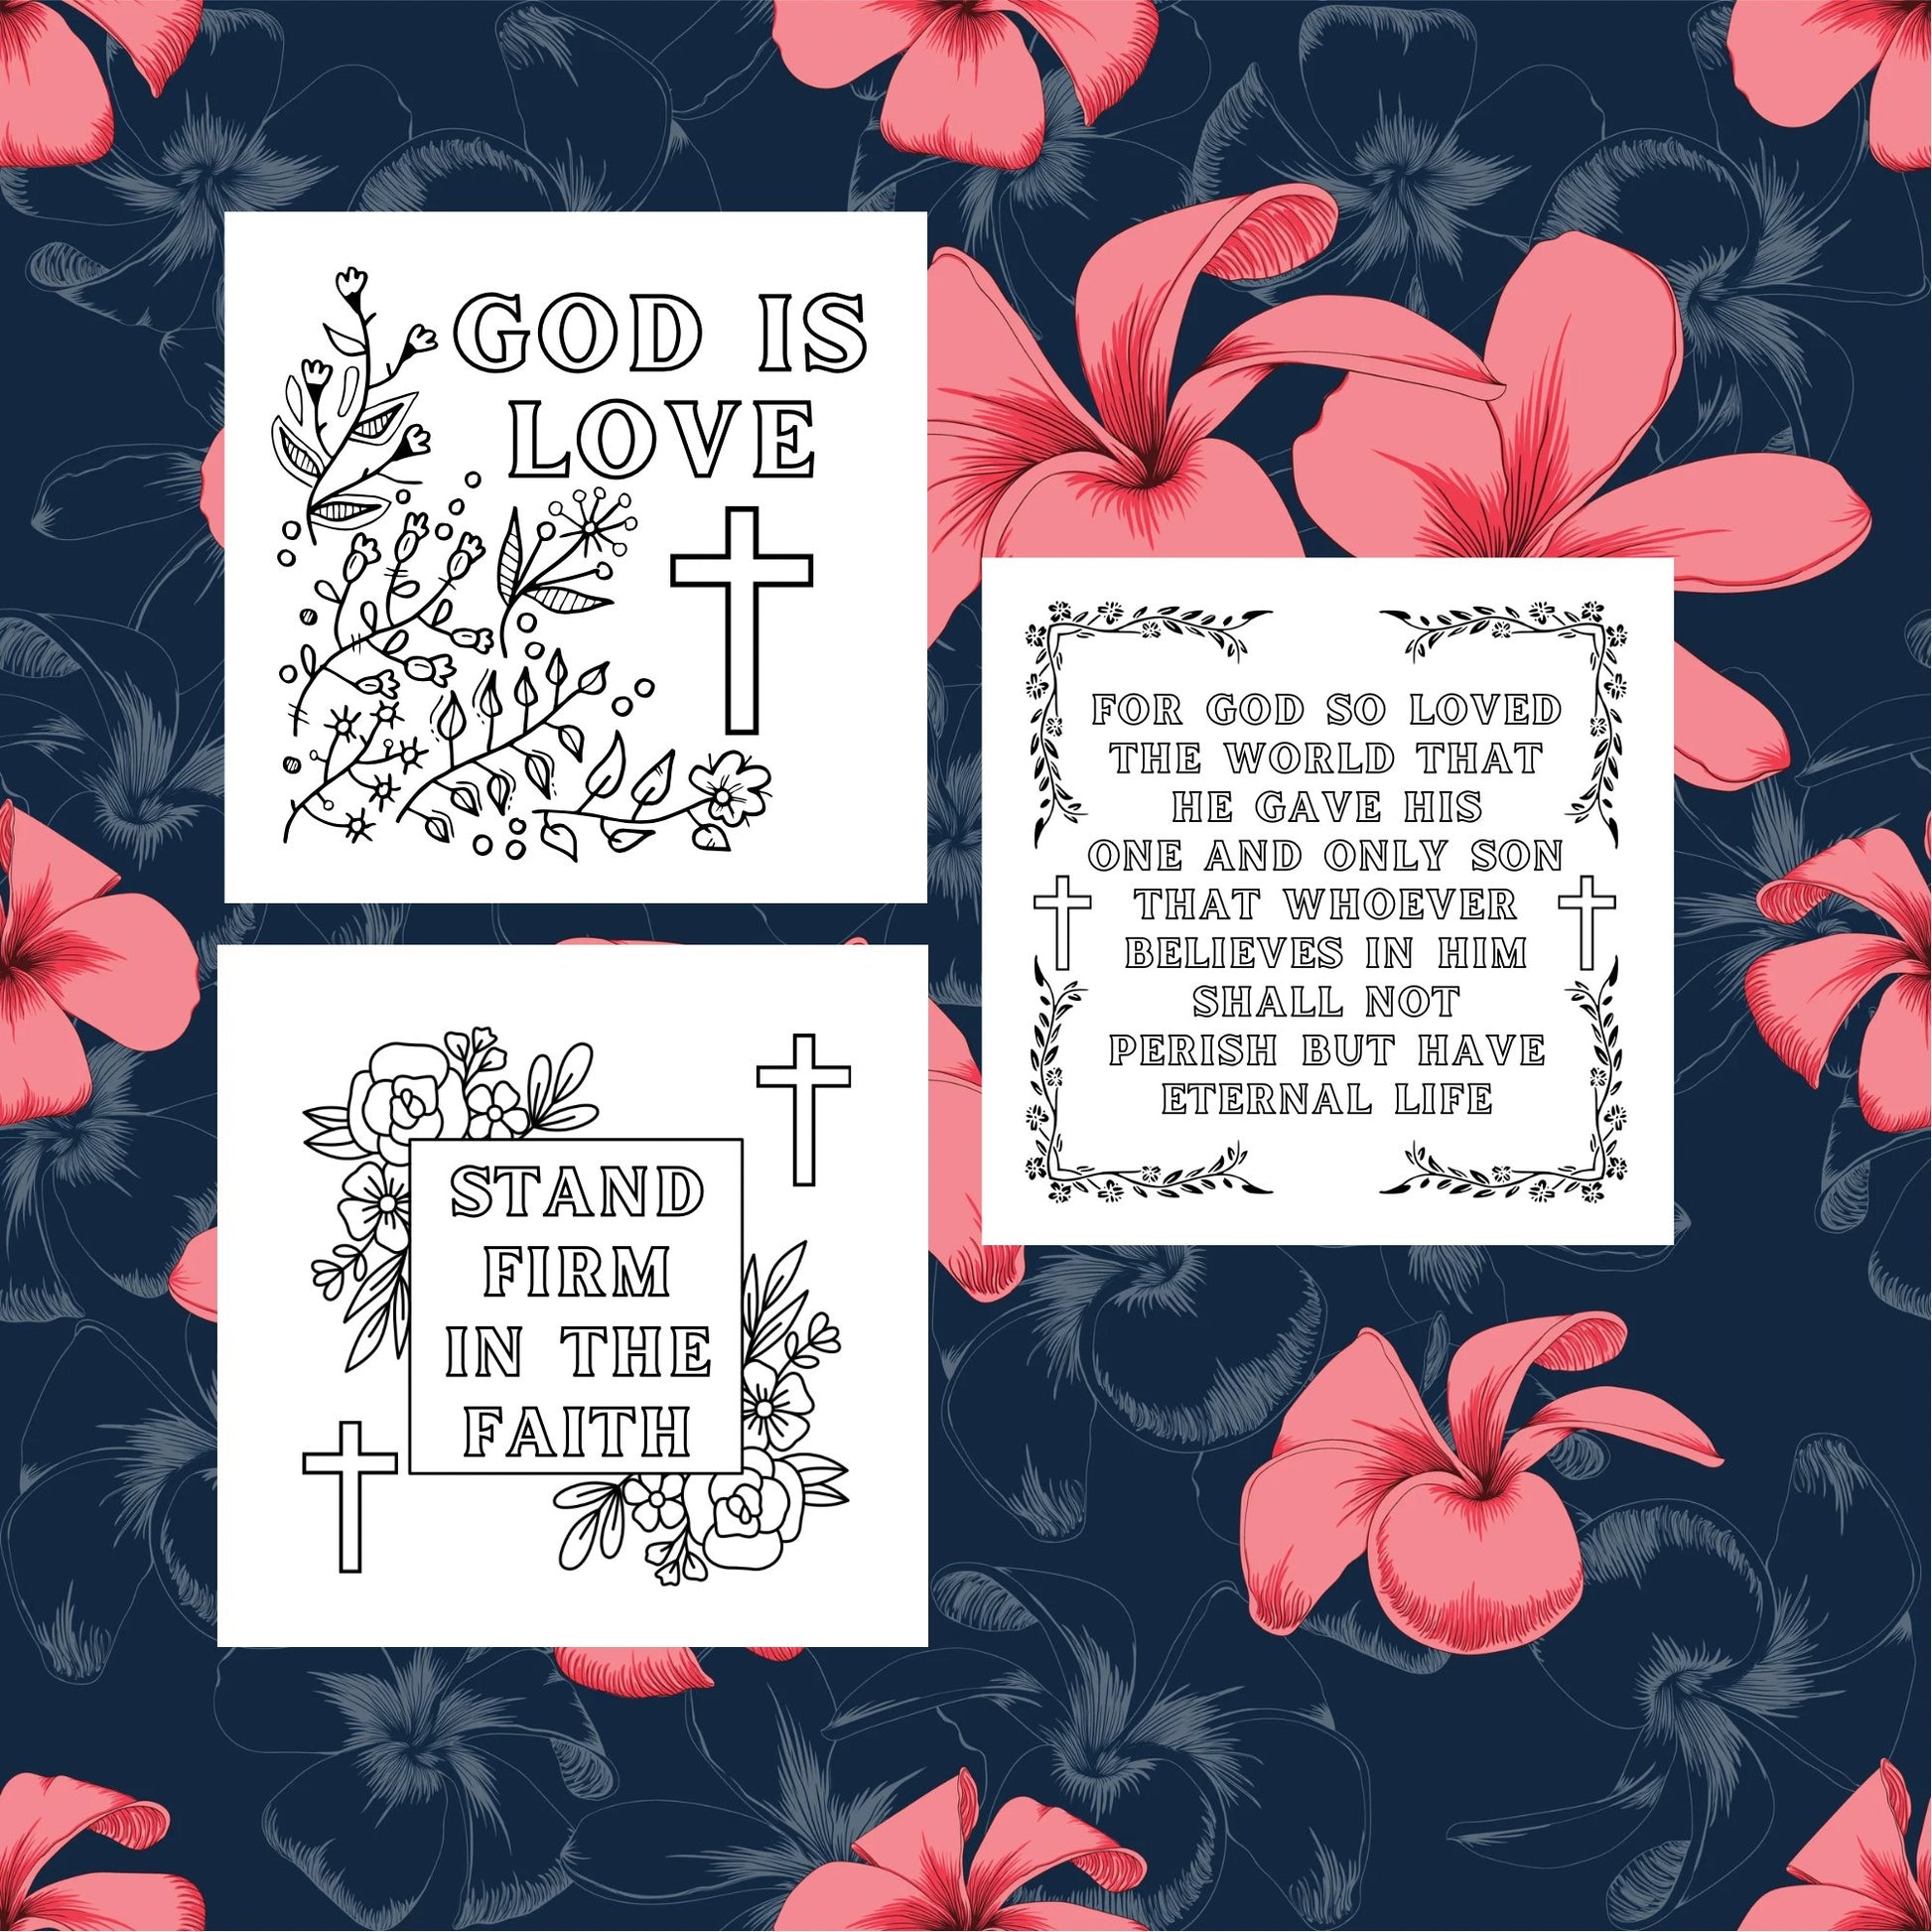 GOD IS
LOVE
STAND
FIRM
IN THE
FAITH
FOR GOD SO LOVED
THE WORLD THAT
HE GAVE HIS
ONE AND ONLY SON
THAT WHOEVER
BELIEVES IN HIM
SHALL NOT
PERISH BUT HAVE
ETERNAL LIFE